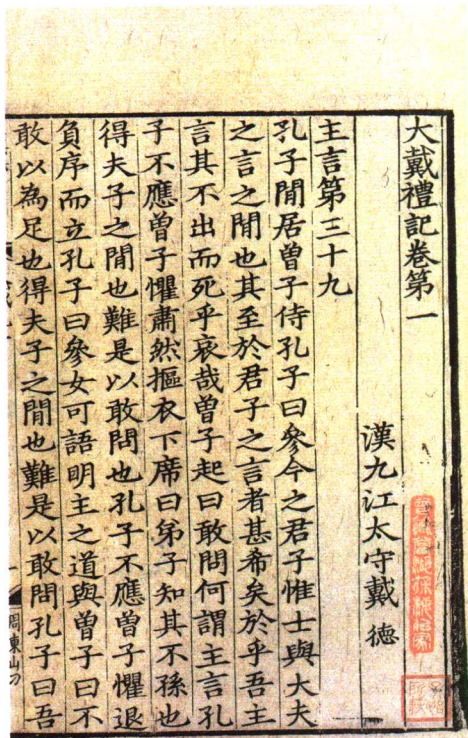 大戴禮記卷第一
漢九江太守戴 德
主言第三十九
孔子閒居曾子侍孔子曰參今之君子惟士與大夫
之言之閒也其至於君子之言者甚希矣於乎吾主
言其不出而死乎哀哉曾子起曰敢問何謂主言孔
子不應曾子懼肅然摳衣下席曰弟子知其不孫也
得夫子之閒也難是以敢問也孔子不應曾子懼退
負序而立孔子曰參女可語明主之道與曾子曰不
敢以為足也得夫子之閒也難是以敢問孔子曰吾
周東山刀